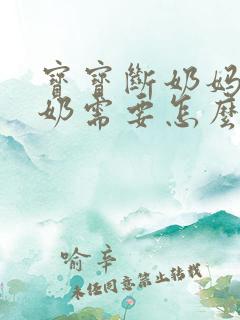 寶寶斷奶媽
奶需要怎麼
喻辛
未任同意禁止转载